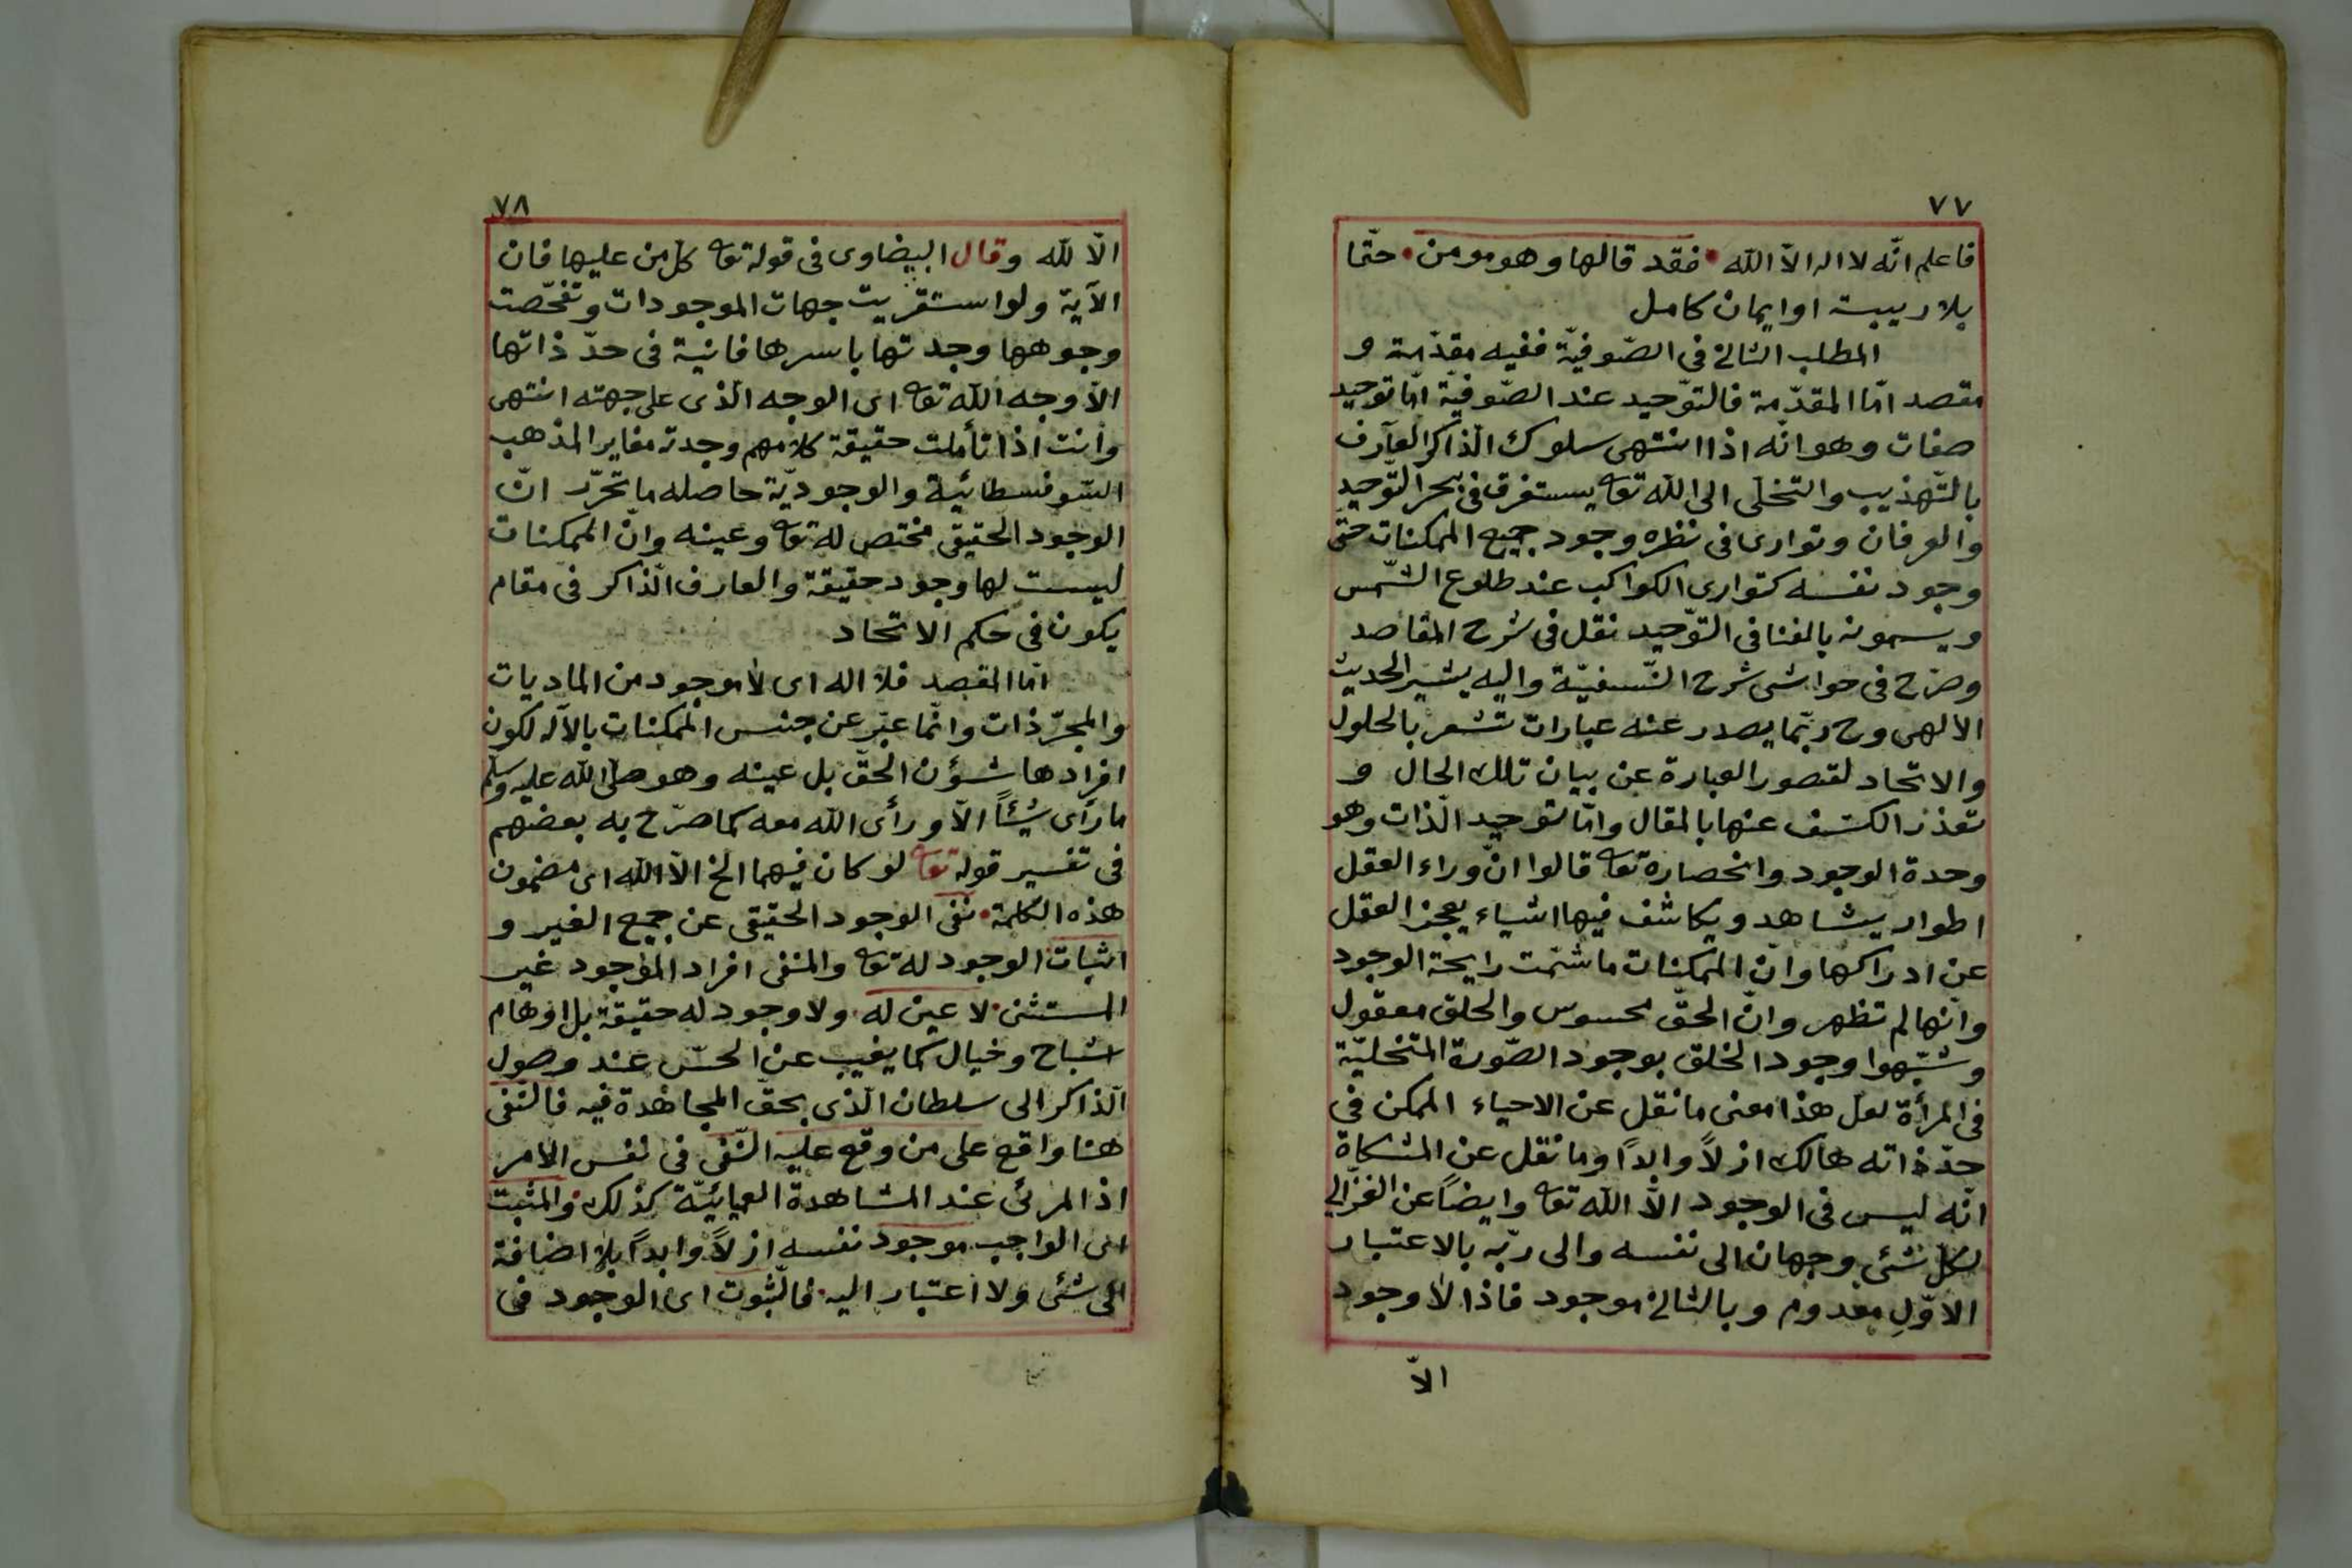 ٧٧
فاعلم انّه لا اله الاّ الله • فقد قالها وهو مومن • حتّما
بلا ريبة او ايمان كامل
المطلب الثالث فى الصّوفيّة ففيه مقدّمة و
مقصد امّا المقدّمة فالتّوحيد عند الصّوفيّة امّا توحيد
صفات وهو انّه اذا انتهى سلوك الذاكر العارف
بالتّهذيب والتخلّى الى الله تعا يستغرق فى بحر التّوحيد
والعرفان وتوارى فى نظره وجود جميع الممكنات حتّى
وجود نفسه كتوارى الكواكب عند طلوع الشّمس
ويسمونه بالفنا فى التّوحيد نقل فى شرح المقاصد
وصرّح فى حواشى شرح النّسفيّة واليه يشير الحديث
الالهى وح ربّما يصدر عنه عبارات تشعر بالحلول
والاتحاد لقصور العبارة عن بيان تلك الحال و
تعذر الكشف عنها بالمقال وامّا توحيد الّذات وهو
وحدة الوجود وانحصاره تعا قالوا انّ وراء العقل
اطوار يشاهد ويكاشف فيها اشياء يعجز العقل
عن ادراكها وانّ الممكنات ما شمّت رايحة الوجود
وانّها لم تظهر وانّ الحقّ محسوس والخلق معقول
وشبّهوا وجود الخلق بوجود الصّورة المتخليّة
فى المرأة لعل هذا معنى ما نقل عن الاحياء الممكن فى
حدّ ذاته هالك ازلاً وابداً وما نقل عن المشكاة
انّه ليس فى الوجود الاّ الله تعا وايضاً عن الغزّالى
لكلّ شئى وجهان الى نفسه والى ربّه بالاعتبار
الاوّل معدوم وبالثالث موجود فاذا لا وجود
الاّ
٧٨
الاّ لله وقال البيضاوى فى قوله تعا كلّ من عليها فان
الآية ولو استقريت جهات الموجودات وتفحّصت
وجوهها وجدتها باسرها فانية فى حدّ ذاتها
الاّ وجه الله تعا اى الوجه الّذى على جهته انتهى
وانت اذا تأملت حقيقة كلامهم وجدته مغاير المذهب
السّوفسطائية والوجوديّة حاصله ما تحرّر انّ
الوجود الحقيقى مختص له تعا وعينه وانّ الممكنات
ليست لها وجود حقيقة والعارف الّذاكر فى مقام
يكون فى حكم الاتحاد
امّا المقصد فلا اله اى لا موجود من الماديات
والمجرّذات وانّما عبّر عن جنس الممكنات بالآله لكون
افرادها شؤن الحقّ بل عينه وهو صلّى الله عليه وسلّم
ما رأى شيئاً الاّ ورأى الله معه كما صرّح به بعضهم
فى تفسير قوله تعا لو كان فيهما الخ الاّ الله اى مضمون
هذه الكلمة • نفى الوجود الحقيقى عن جميع الغير و
اثبات الوجود له تعا والمنفى افراد الموجود غير
المستثنى • لا عين له • ولا وجود له حقيقة بل اوهام
اشباح وخيال كما يغيب عن الحسّ عند وصول
الّذاكر الى سلطان الّذى بحقّ المجاهدة فيه فالنّفى
هنا واقع على من وقع عليه النّفى فى نفس الامر
اذ المرئى عند المشاهدة العيائيّة كذلك • والمثبت
اى الواجب موجود نفسه ازلاً وابداً بلا اضافة
الى شئى ولا اعتبار اليه • فالثّبوت اى الوجود فى